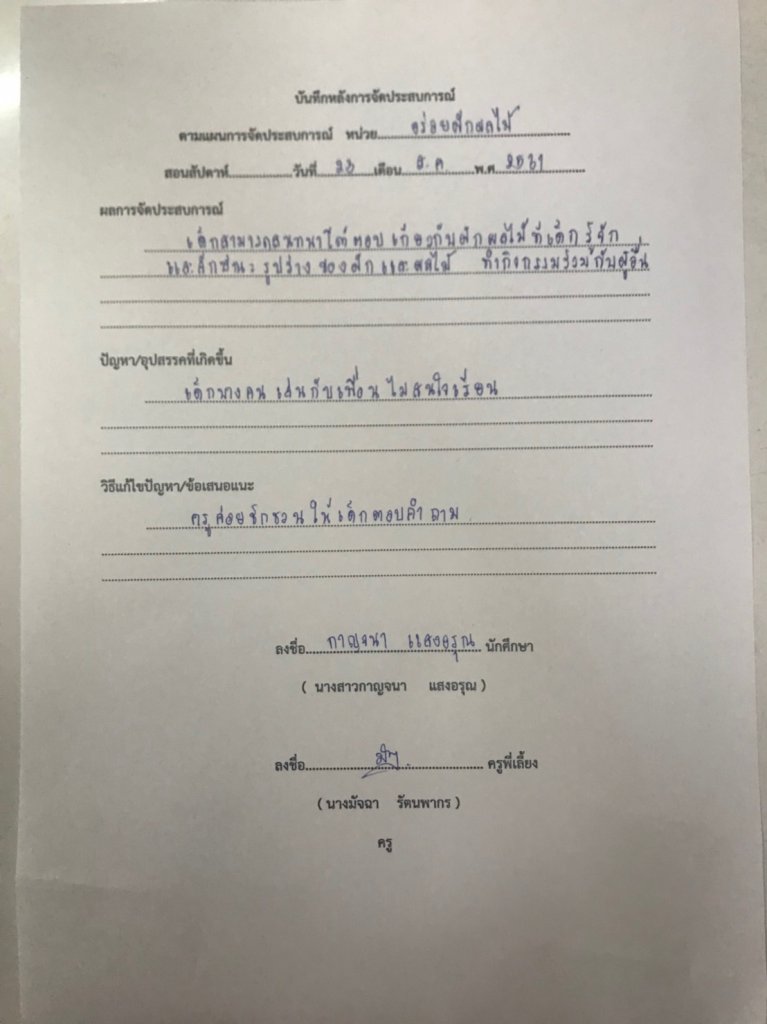 บันทึกหลังการจัดประสบการณ์
ตามแผนการจัดประสบการณ์ หน่วย อร่อยผักผลไม้
สอนสัปดาห์ วันที่ 23 เดือน ธ.ค พ.ศ 2561
ผลการจัดประสบการณ์
เด็กสามารถสนทนาโต้ตอบ เกี่ยวกับผักผลไม้ที่เด็กรู้จัก
และลักษณะรูปร่างของผักและผลไม้ ทำกิจกรรมร่วมกับผู้อื่น
ปัญหา/อุปสรรคที่เกิดขึ้น
เด็กบางคน เล่นกับเพื่อน ไม่สนใจเรียน
วิธีแก้ไขปัญหา/ข้อเสนอแนะ
ครูค่อยชักชวน ให้เด็กตอบคำถาม
ลงชื่อ กาญจนา แสงอรุณ นักศึกษา
( นางสาวกาญจนา แสงอรุณ )
ลงชื่อ ครูพี่เลี้ยง
( นางมัจฉา รัตนพากร )
ครู